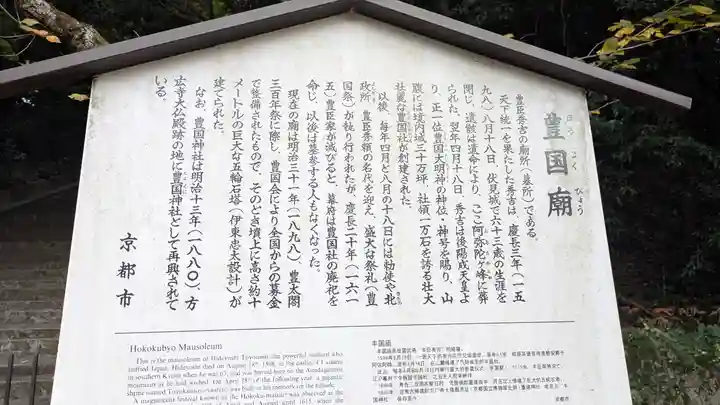 豊国廟
ほう こく びょう
豊臣秀吉の廟所（墓所）である。
天下統一を果たした秀吉は、慶長三年（一五
九八）八月十八日、伏見城で六十三歳の生涯を
閉じ、遺骸は遺命により、ここ阿弥陀ヶ峰に葬
られた。翌年四月十八日、秀吉は後陽成天皇よ
り、正一位豊国大明神の神位・神号を賜り、山
腹には境内域三十万坪、社領一万石を誇る壮大
壮麗な豊国社が創建された。
以後、毎年四月と八月の十八日には勅使や北
政所、豊臣秀頼の名代を迎え、盛大な祭礼（豊
国祭）が執り行われたが、慶長二十年（一六一
五）豊臣家が滅びると、幕府は豊国社の廃祀を
命じ、以後は墓参する人もなくなった。
現在の廟は明治三十一年（一八九八）、豊太閤
三百年祭に際し、豊国会により全国からの募金
で整備されたもので、そのとき墳上に高さ約十
メートルの巨大な五輪石塔（伊東忠太設計）が
建てられた。
なお、豊国神社は明治十三年（一八八〇）、方
広寺大仏殿跡の地に豊国神社として再興されて
いる。
京都市
Hokokubyo Mausoleum
This is the mausoleum of Hideyoshi Toyotomi, the powerful warlord who
unified Japan. Hideyoshi died on August 18th, 1598, at
when he was 63, and was buried here on the Amidagamine
mountain as he had wished. On April 18th of the following year, a majestic
丰国庙